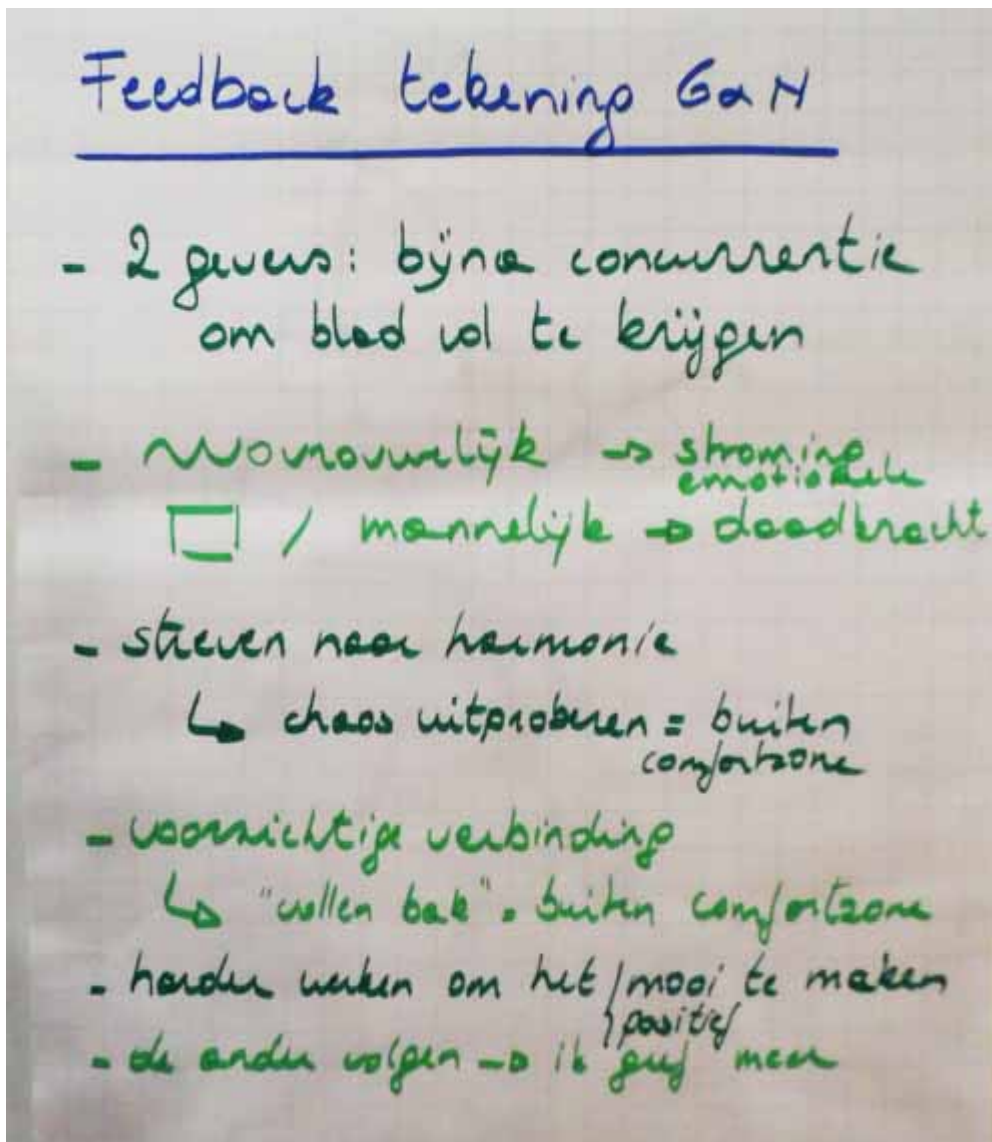 Feedback tekening G&N
- 2 gevers: bijna concurrentie
om blad vol te krijgen
- vrouwelijk → stroming
emotionele
/ mannelijk → daadkracht
- streven naar harmonie
↳ chaos uitproberen = buiten
comfortzone
- voorzichtige verbinding
↳ "vollen bak" = buiten comfortzone
- harder werken om het / mooi te maken
positief
- de ander volgen → ik geef meer